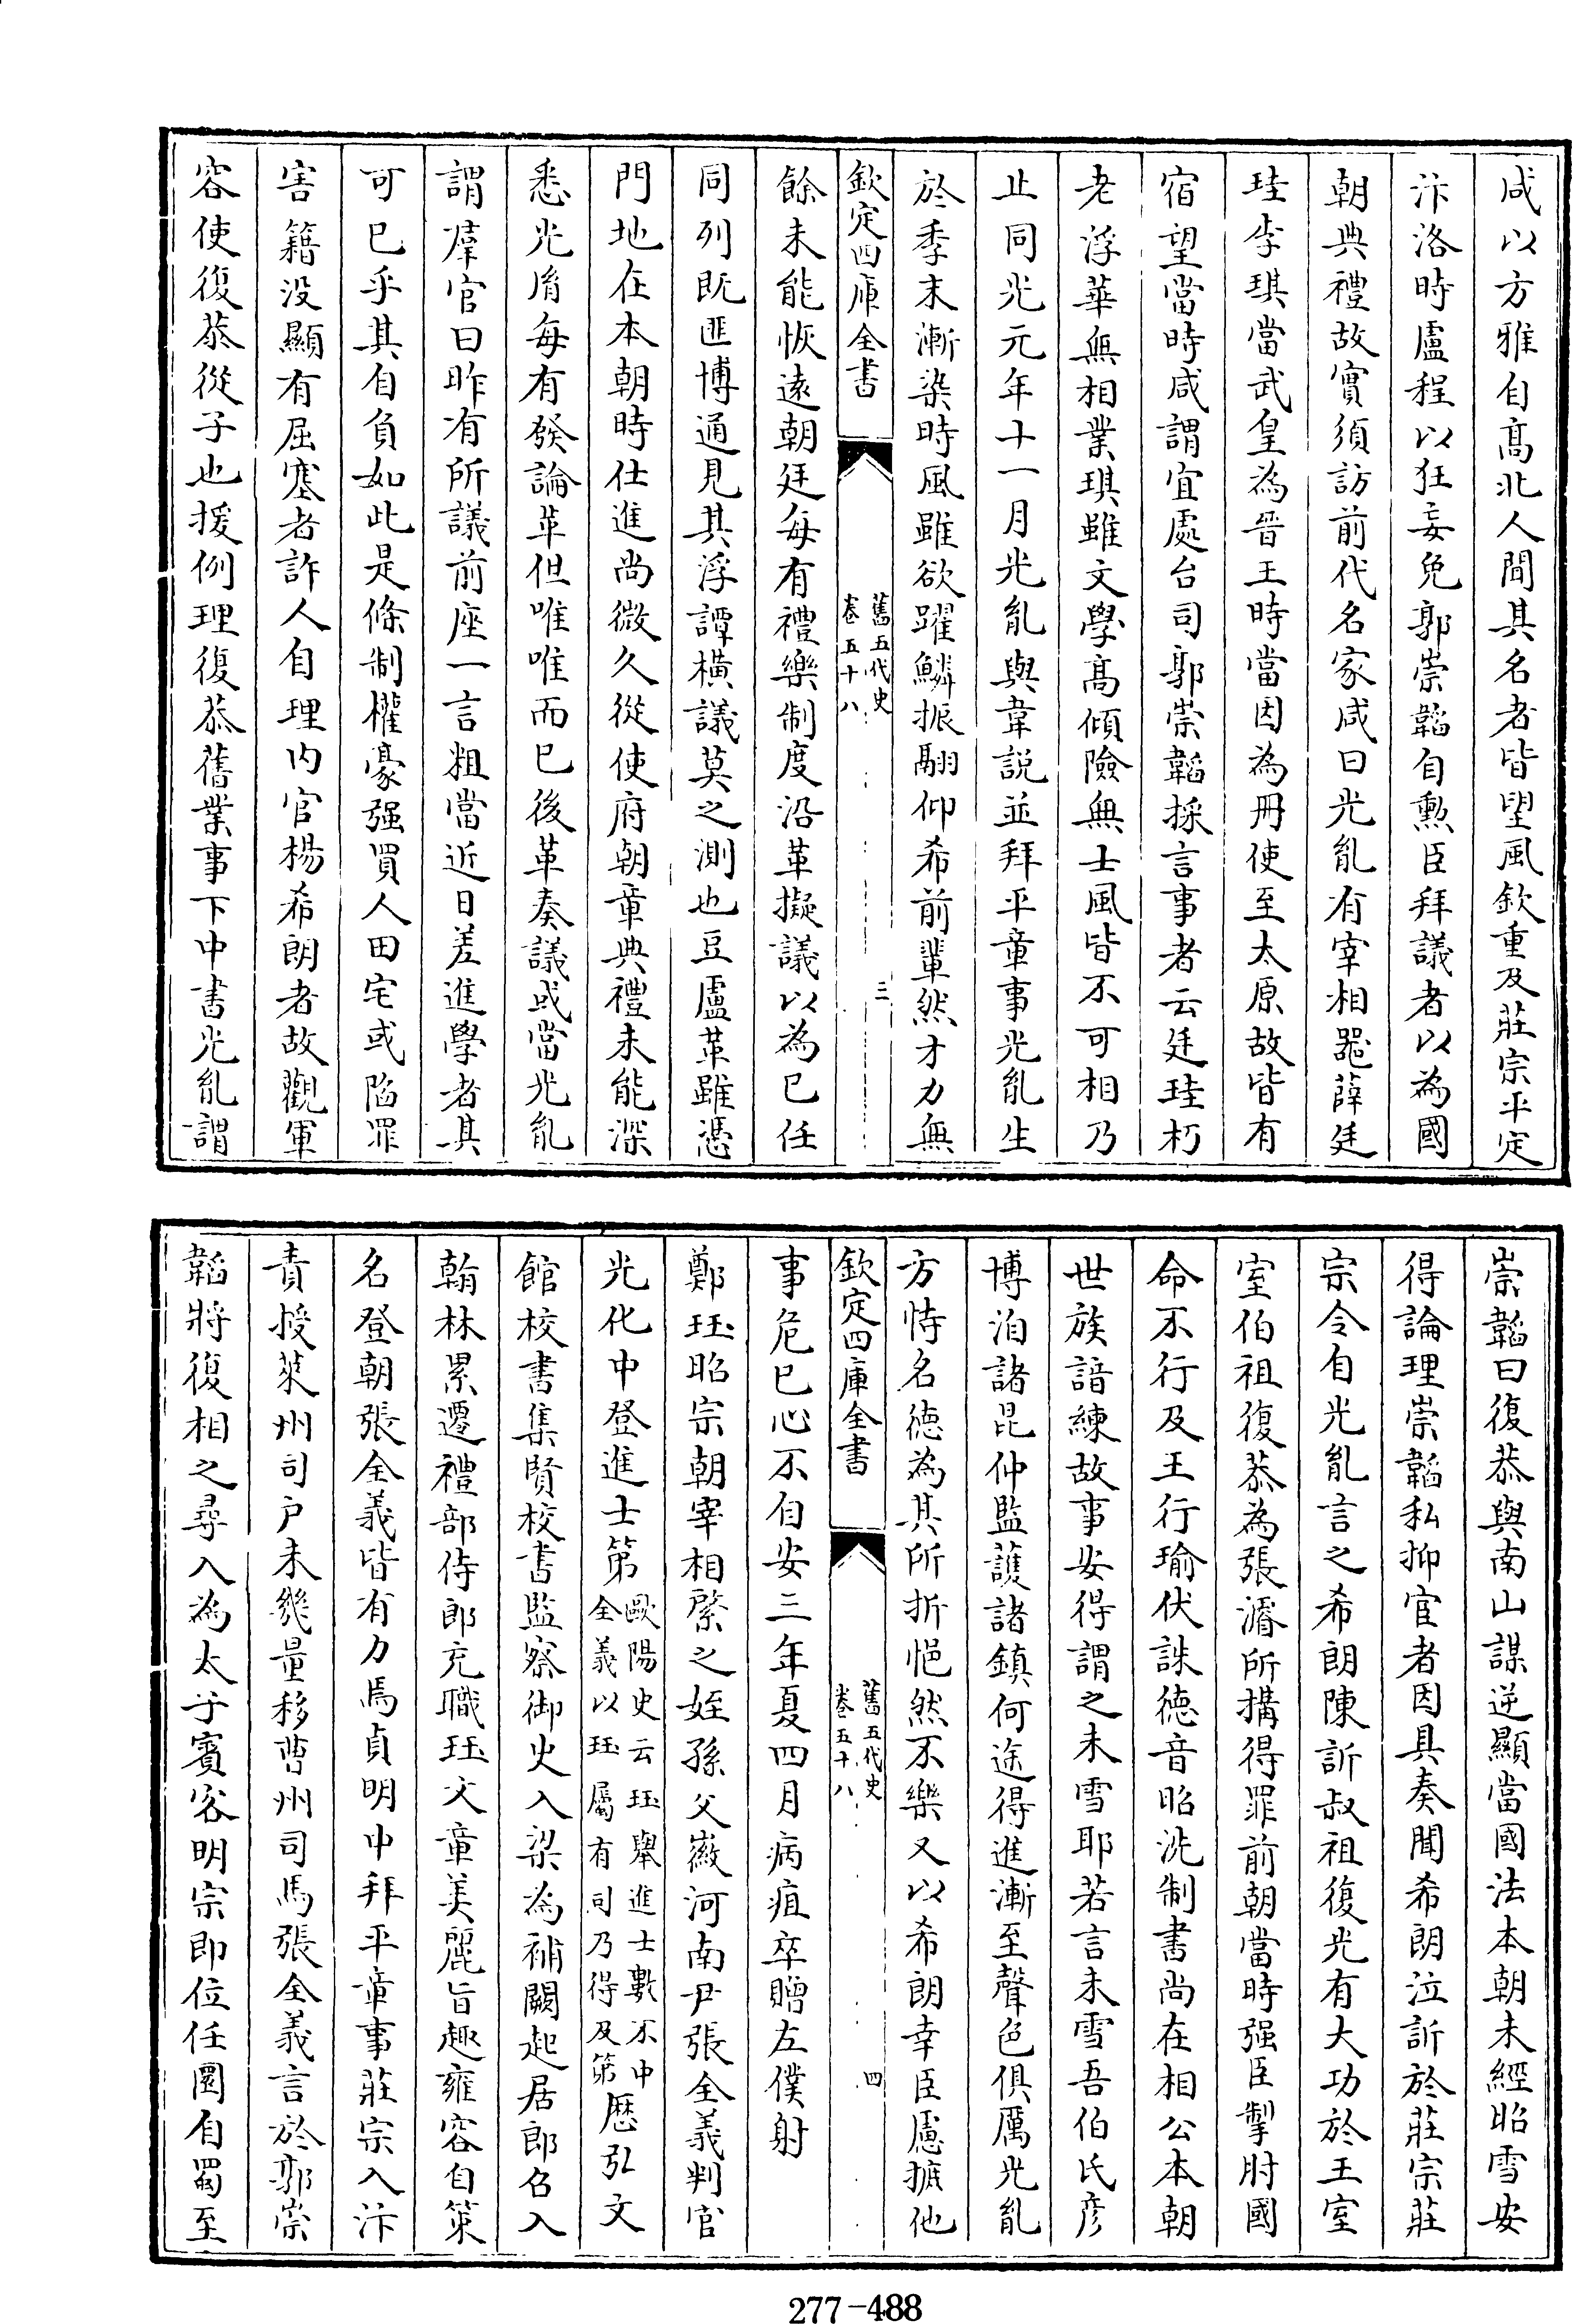 咸以方雅自高北人聞其名者皆望風欽重及莊宗平定
汴洛時盧程以狂妄免郭崇韜自勲臣拜議者以為國
朝典禮故實須訪前代名家咸曰光胤有宰相器薛廷
珪李琪當武皇為晉王時當因為冊使至太原故皆有
宿望當時咸謂宜處台司郭崇韜採言事者云廷珪朽
老浮華無相業琪雖文學高傾險無士風皆不可相乃
止同光元年十一月光胤與韋説並拜平章事光胤生
於季末漸染時風雖欲躍鱗振翮仰希前輩然才力無
欽定四庫全書
舊五代史
卷五十八
三
餘未能恢遠朝廷每有禮樂制度沿革擬議以為已任
同列既匪博通見其浮譚橫議莫之測也豆盧革雖憑
門地在本朝時仕進尚微久從使府朝章典禮未能深
悉光胤每有發論革但唯唯而已後革奏議或當光胤
謂羣官曰昨有所議前座一言粗當近日差進學者其
可已乎其自負如此是條制權豪强買人田宅或陷罪
害籍没顯有屈塞者許人自理内官楊希朗者故觀軍
容使復恭從子也援例理復恭舊業事下中書光胤謂
崇韜曰復恭與南山謀逆顯當國法本朝未經昭雪安
得論理崇韜私抑宦者因具奏聞希朗泣訴於莊宗莊
宗令自光胤言之希朗陳訴叔祖復光有大功於王室
伯祖復恭為張濬所搆得罪前朝當時强臣掣肘國
命不行及王行瑜伏誅德音昭洗制書尚在相公本朝
世族諳練故事安得謂之未雪耶若言未雪吾伯氏彦
博洎諸昆仲監護諸鎮何途得進漸至聲色俱厲光胤
方恃名德為其所折悒然不樂又以希朗幸臣慮摭他
欽定四庫全書
舊五代史
卷五十八
四
事危已心不自安三年夏四月病疽卒贈左僕射
鄭珏昭宗朝宰相綮之姪孫父徽河南尹張全義判官
光化中登進士第歐陽史云珏舉進士數不中全義以珏屬有司乃得及第歴弘文
館校書集賢校書監察御史入梁為補闕起居郎召入
翰林累遷禮部侍郎充職珏文章美麗旨趣雍容自策
名登朝張全義皆有力焉貞明中拜平章事莊宗入汴
責授萊州司户未幾量移曹州司馬張全義言於郭崇
韜將復相之尋入為太子賓客明宗即位任圜自蜀至
277-488